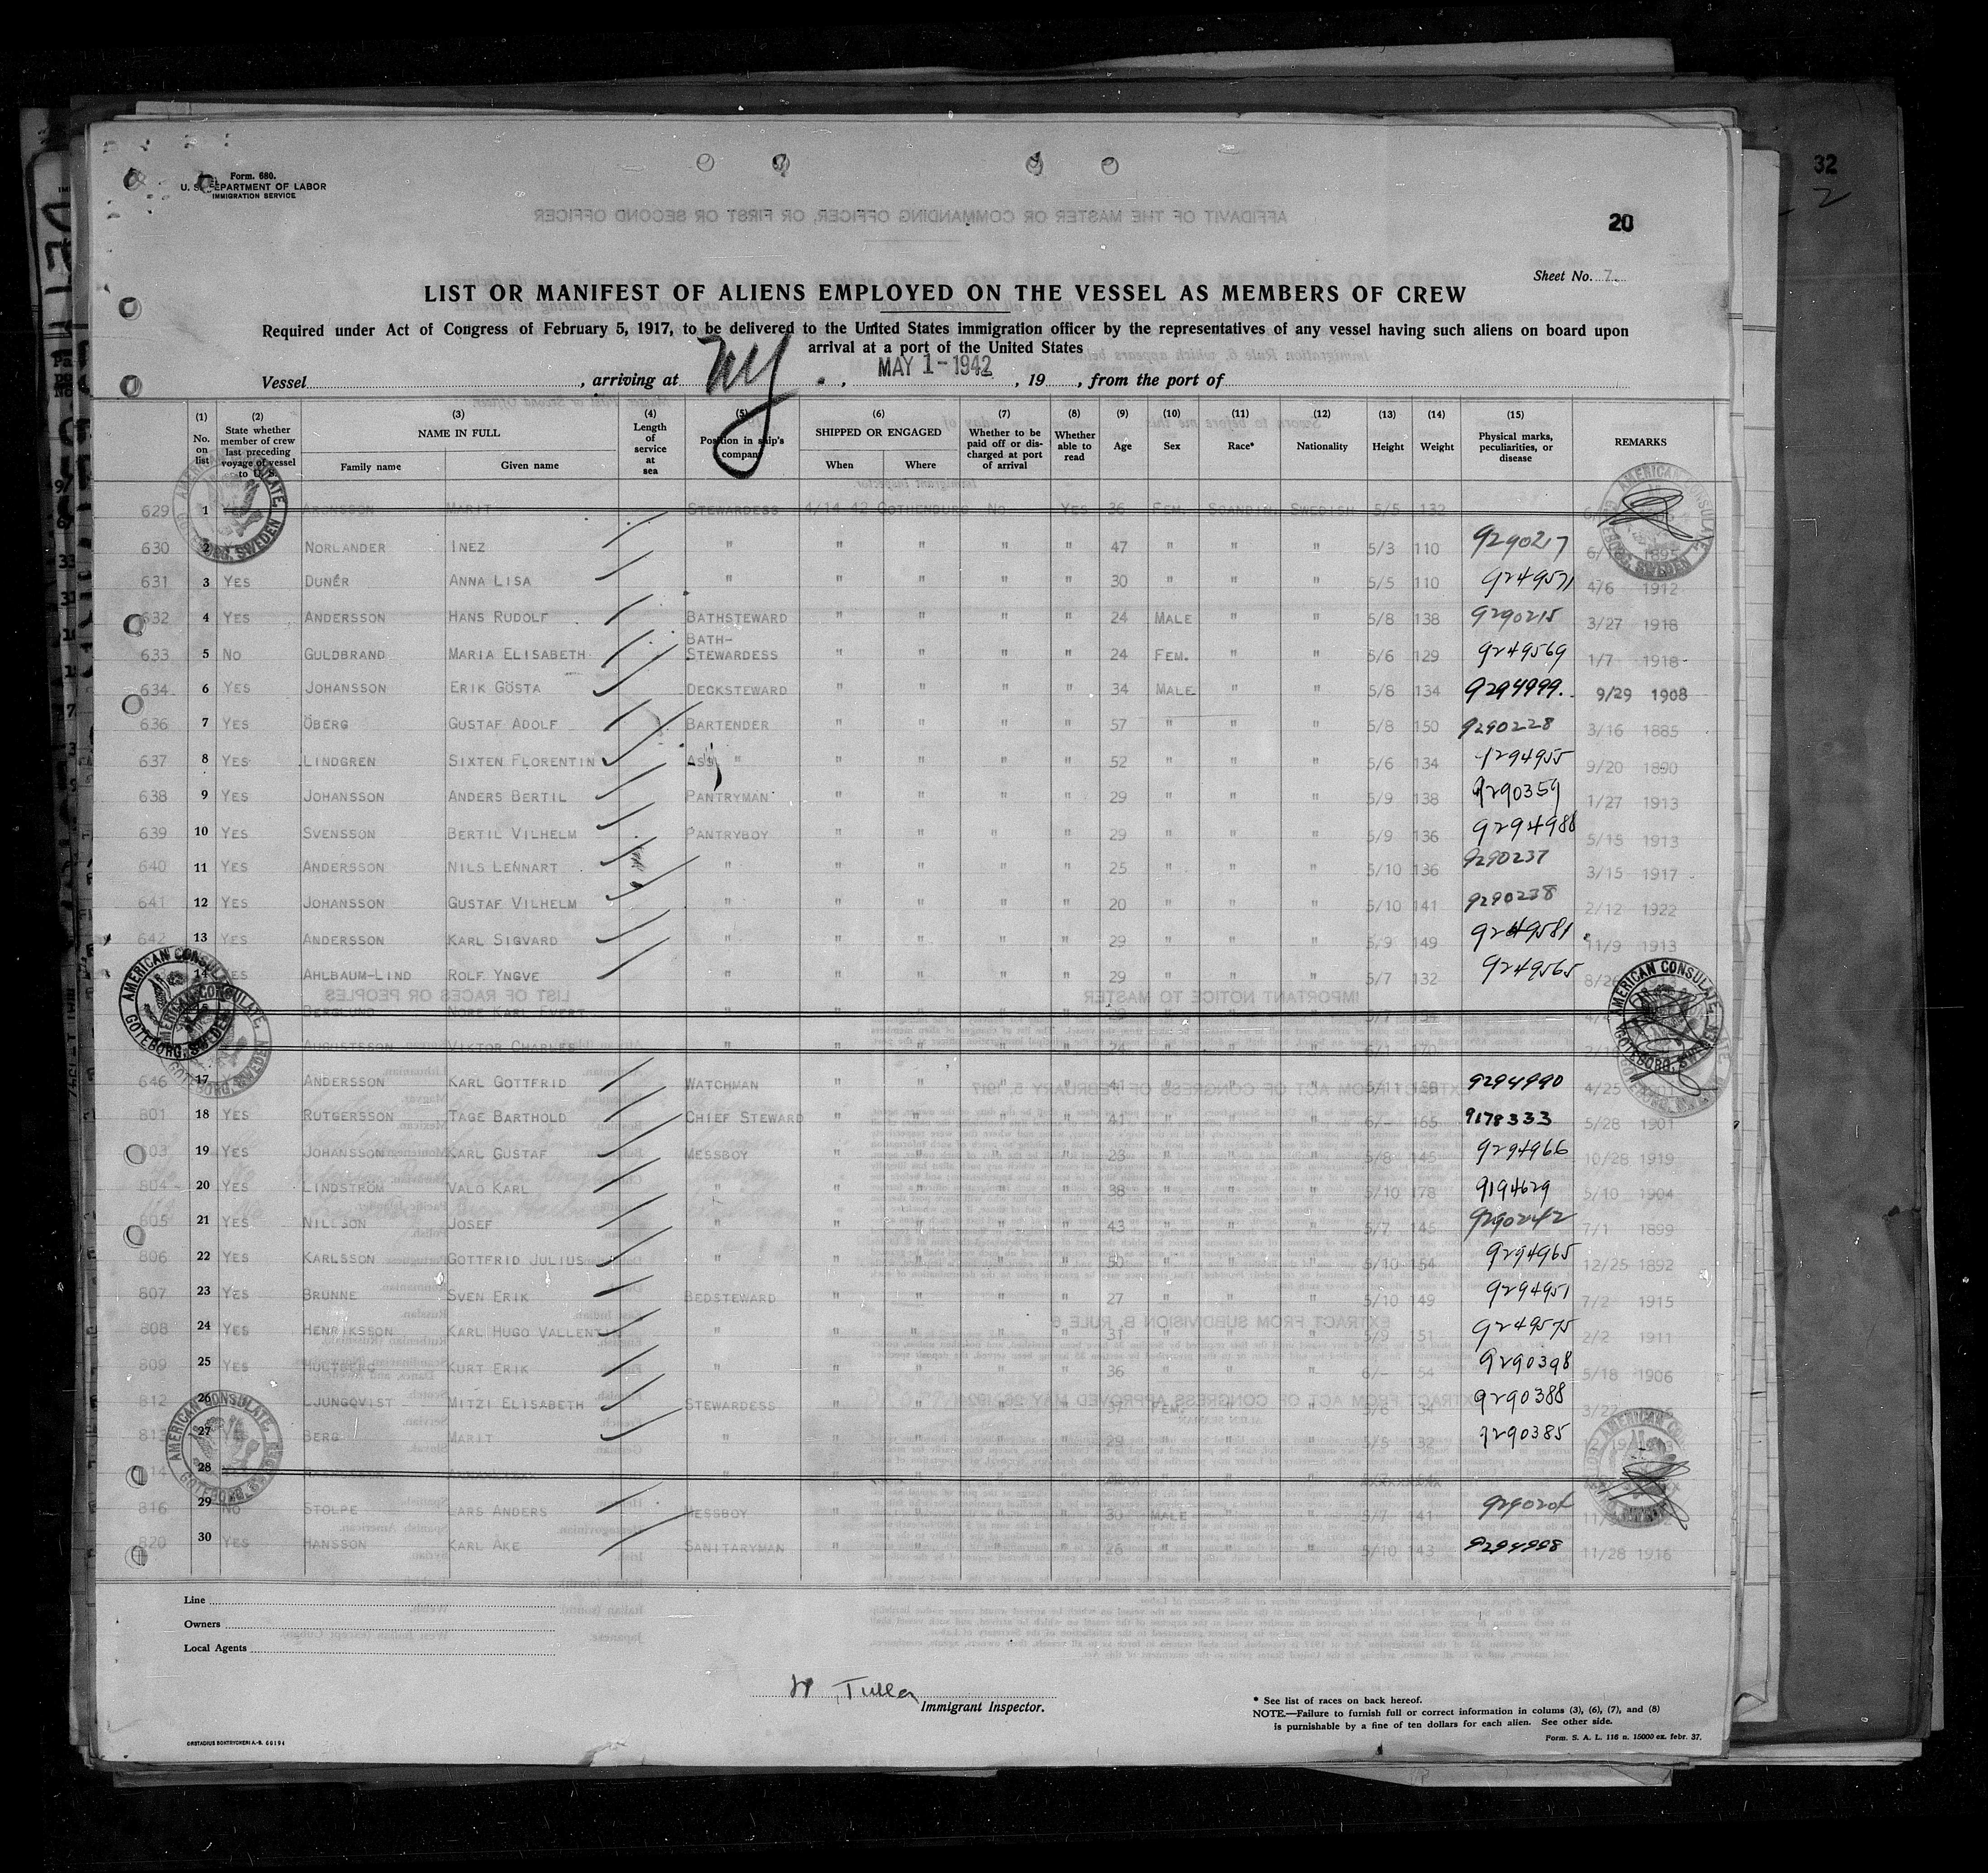 32
2
Form. 680.
U. S. DEPARTMENT OF LABOR
IMMIGRATION SERVICE
20
Sheet No. 7
LIST OR MANIFEST OF ALIENS EMPLOYED ON THE VESSEL AS MEMBERS OF CREW
Required under Act of Congress of February 5, 1917, to be delivered to the United States immigration officer by the representatives of any vessel having such aliens on board upon
arrival at a port of the United States
Vessel , arriving at NY. , MAY 1-1942 , 19 , from the port of
(1) No. on list (2) State whether member of crew last preceding voyage of vessel to U. S. (3) NAME IN FULL Family name Given name (4) Length of service at sea (5) Position in ship's company (6) SHIPPED OR ENGAGED When Where (7) Whether to be paid off or discharged at port of arrival (8) Whether able to read (9) Age (10) Sex (11) Race* (12) Nationality (13) Height (14) Weight (15) Physical marks, peculiarities, or disease REMARKS
629 1 ARONSSON MARIT STEWARDESS 4/14 42 GOTHENBURG NO YES 36 FEM. SCANDIN. SWEDISH 5/5 132
630 2 NORLANDER INEZ " " " " " 47 " " " 5/3 110 9290217 6/ 1895
631 3 YES DUNÉR ANNA LISA " " " " " 30 " " " 5/5 110 9249571 4/6 1912
632 4 YES ANDERSSON HANS RUDOLF BATHSTEWARD " " " " 24 MALE " " 5/8 138 9290215 3/27 1918
633 5 NO GULDBRAND MARIA ELISABETH BATH-STEWARDESS " " " " 24 FEM. " " 5/6 129 9249569 1/7 1918
634 6 YES JOHANSSON ERIK GÖSTA DECKSTEWARD " " " " 34 MALE " " 5/8 134 9294999. 9/29 1908
636 7 YES ÖBERG GUSTAF ADOLF BARTENDER " " " " 57 " " " 5/8 150 9290228 3/16 1885
637 8 YES LINDGREN SIXTEN FLORENTIN ASS. " " " " " 52 " " " 5/6 134 9294955 9/20 1890
638 9 YES JOHANSSON ANDERS BERTIL PANTRYMAN " " " " 29 " " " 5/9 138 9290359 1/27 1913
639 10 YES SVENSSON BERTIL VILHELM PANTRYBOY " " " " 29 " " " 5/9 136 9294988 5/15 1913
640 11 YES ANDERSSON NILS LENNART " " " " " 25 " " " 5/10 136 9290237 3/15 1917
641 12 YES JOHANSSON GUSTAF VILHELM " " " " " 20 " " " 5/10 141 9290238 2/12 1922
642 13 YES ANDERSSON KARL SIGVARD " " " " " 29 " " " 5/9 149 9249581 11/9 1913
14 YES AHLBAUM-LIND ROLF YNGVE " " " " " 29 " " " 5/7 132 9249565 8/26
BERGLUND NORE KARL EVERT
AUGUSTSSON VIKTOR CHARLES 24 6/1 170
646 17 ANDERSSON KARL GOTTFRID WATCHMAN " " " " 41 " " " 5/11 186 9294990 4/25 1901
801 18 YES RUTGERSSON TAGE BARTHOLD CHIEF STEWARD " " " " 41 " " " 6/- 165 9178333 5/28 1901
803 19 YES JOHANSSON KARL GUSTAF MESSBOY " " " " 23 " " " 5/8 145 9294966 10/28 1919
804 20 YES LINDSTRÖM VALD KARL " " " " " 38 " " " 5/10 178 9194629 5/10 1904
805 21 YES NILSSON JOSEF " " " " " 43 " " " 5/7 145 9290242 7/1 1899
806 22 YES KARLSSON GOTTFRID JULIUS " " " " " 50 " " " 5/10 154 9294965 12/25 1892
807 23 YES BRUNNE SVEN ERIK BEDSTEWARD " " " " 27 " " " 5/10 149 9294951 7/2 1915
808 24 YES HENRIKSSON KARL HUGO VALLENT " " " " " 31 " " " 5/9 151 9249575 2/2 1911
809 25 YES HULTBERG KURT ERIK " " " " " 36 " " " 6/- 54 9290398 5/18 1906
812 26 LJUNGQVIST MITZI ELISABETH STEWARDESS " " " " 37 FEM. " " 5/6 34 9290388 3/22
813 27 BERG MARIT " " " " " 29 " " " 5/5 132 9290385
28
816 29 NO STOLPE LARS ANDERS MESSBOY " " " " 30 MALE " " 5/7 141 11/
820 30 YES HANSSON KARL ÅKE SANITARYMAN " " " " 26 " " " 5/10 143 9294998 11/28 1916
AMERICAN CONSULATE
GOTEBORG, SWEDEN
Line
Owners
Local Agents
W Tuller
Immigrant Inspector.
* See list of races on back hereof.
NOTE.—Failure to furnish full or correct information in colums (3), (6), (7), and (8)
is punishable by a fine of ten dollars for each alien. See other side.
ORSTADIUS BOKTRYCKERI A.-B. 66194
Form. S. A. L. 116 n. 15000 ex. febr. 37.